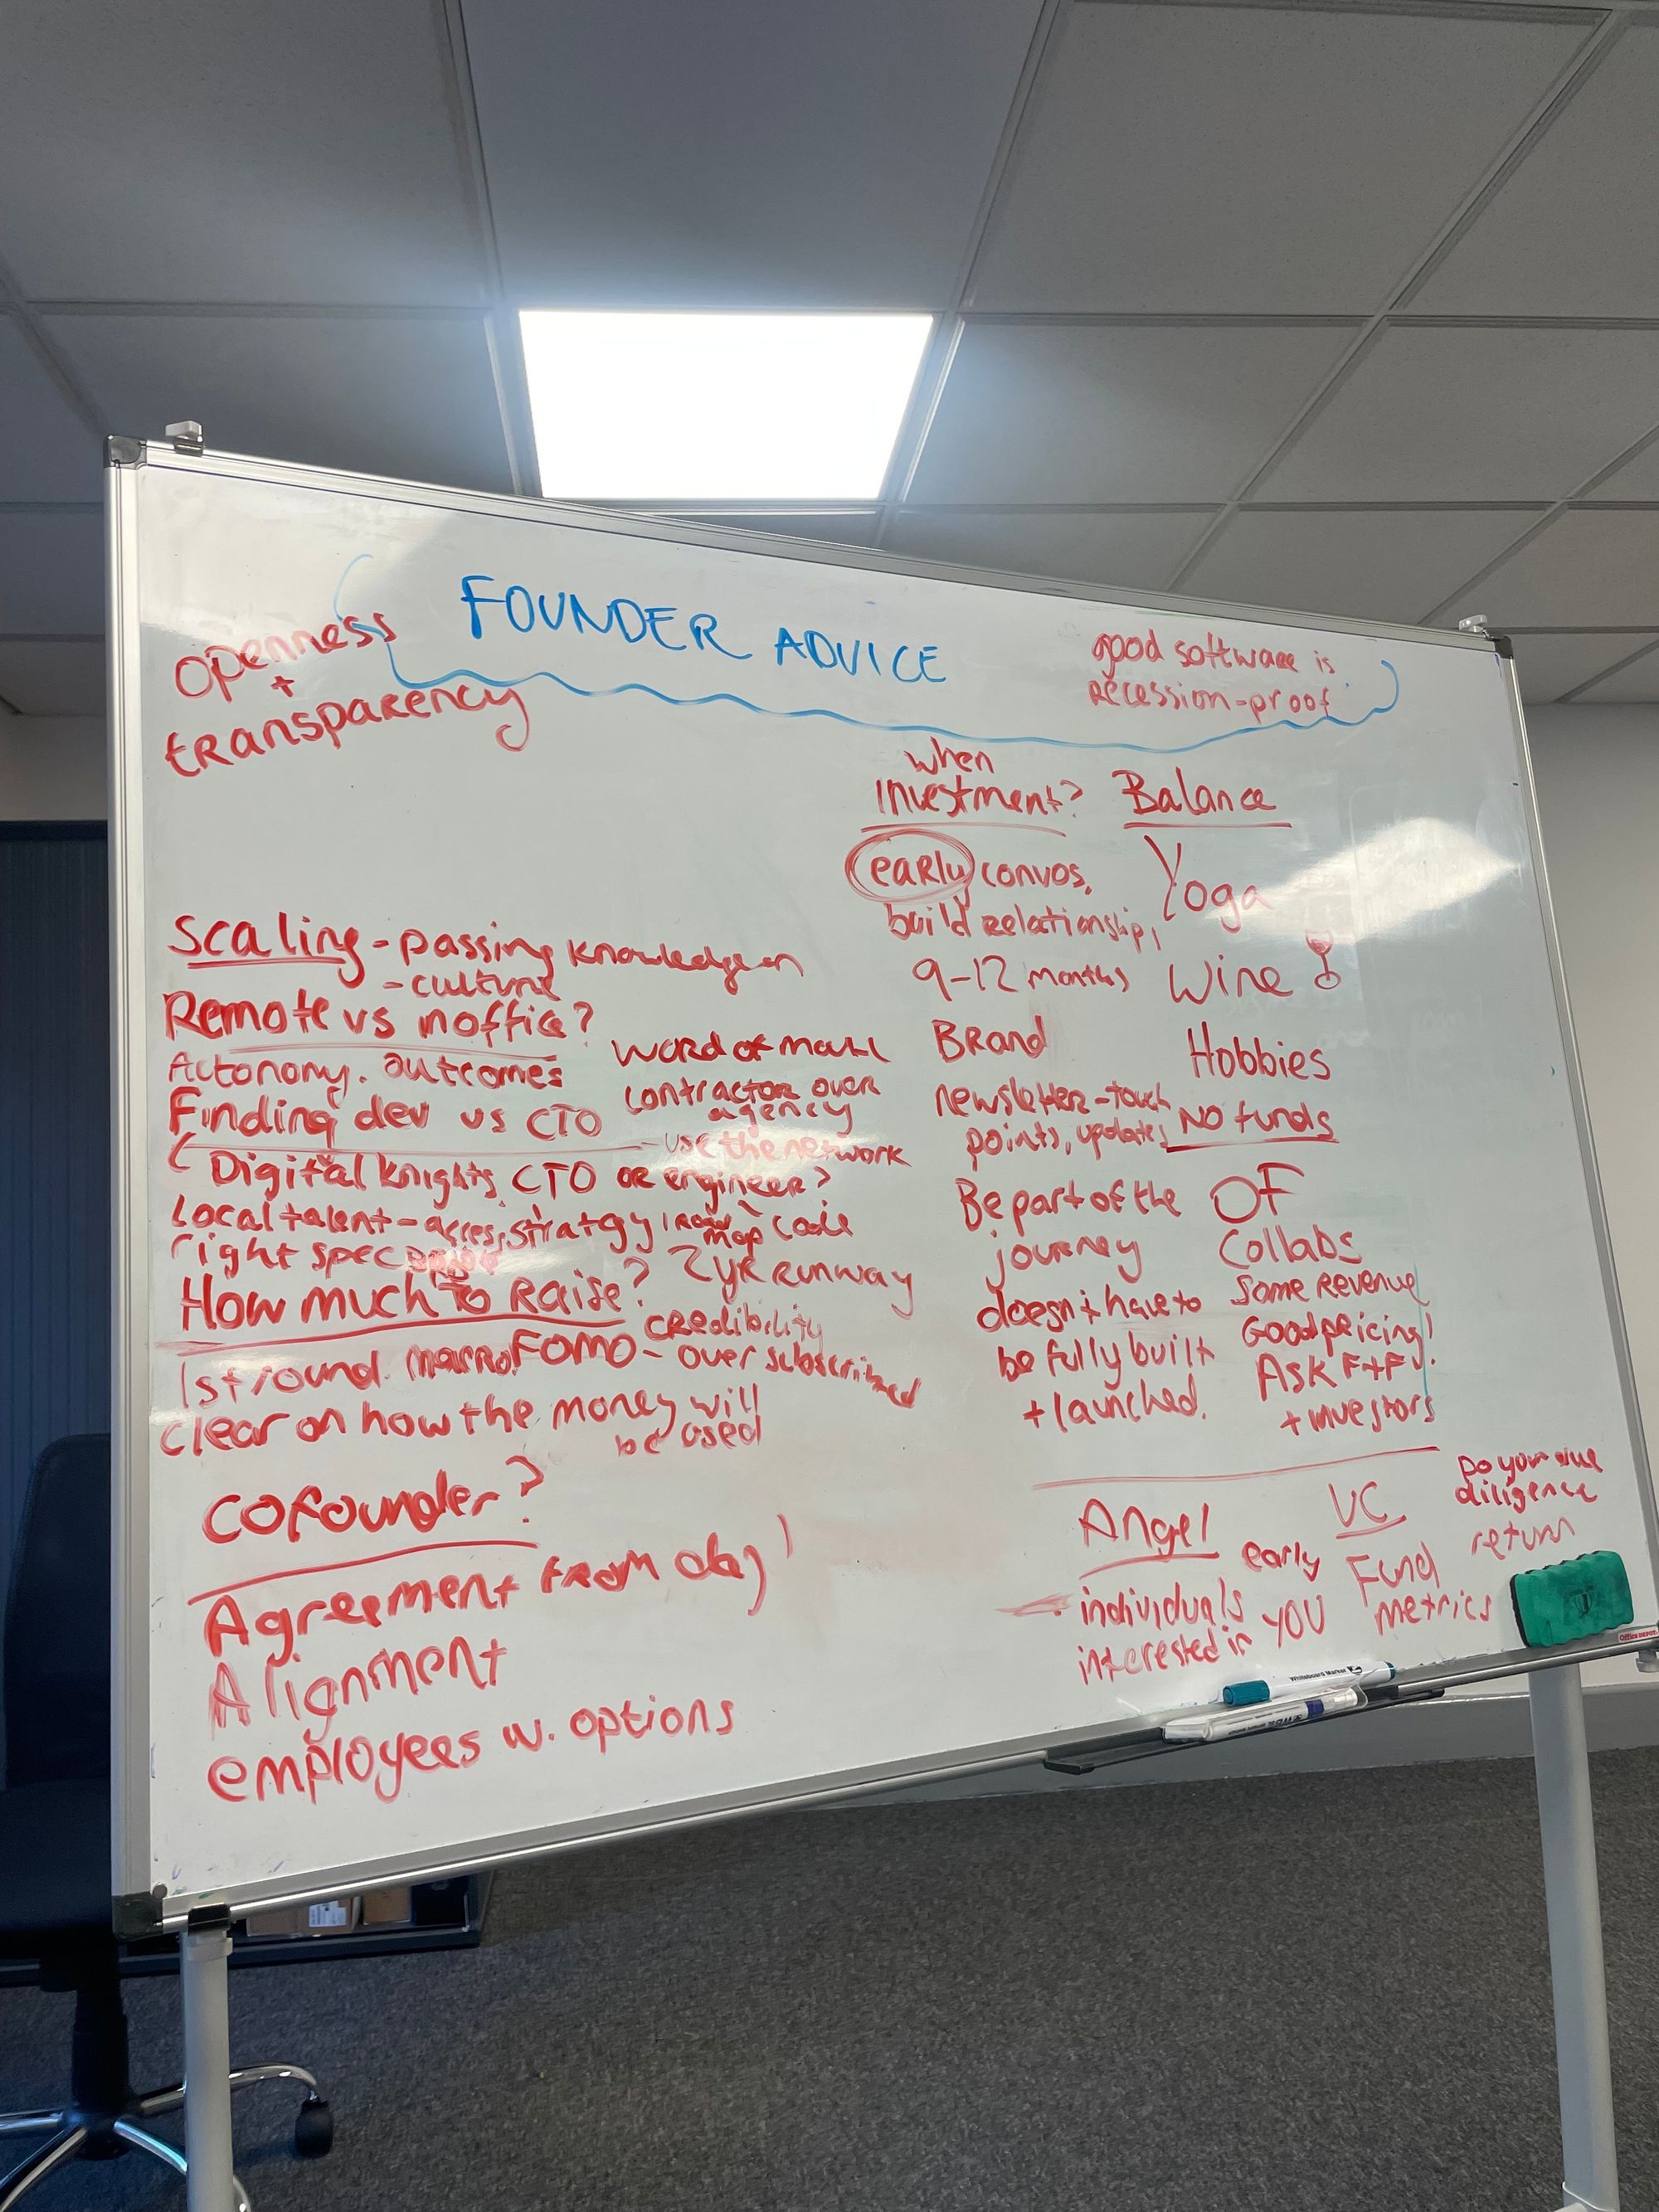 FOUNDER ADVICE
openness
+
transparency
good software is
recession-proof
Scaling - passing knowledge on
- culture
Remote vs inoffice?
Autonomy. outcomes
Finding dev vs CTO
word of mouth
contractor over
agency
- use the network
Digital Knights CTO or engineer?
Local talent - access, strategy, road map code
right spec
How much to Raise? 2 yr runway
1st round. macro FOMO - credibility
over subscribed
clear on how the money will
be used
Cofounder?
Agreement from day 1
Alignment
employees w. options
when
investment?
early convos,
build relationship,
9-12 months
Brand
newsletter - touch
points, updates
Be part of the
journey
doesn't have to
be fully built
+ launched.
Balance
Yoga
Wine
Hobbies
NO funds
OF
Collabs
Some revenue
Good pricing!
Ask F+F
+ investors
Angel
early
individuals
interested in YOU
VC
Fund
metrics
Do your due
diligence
return
Whiteboard Marker
Office DEPOT